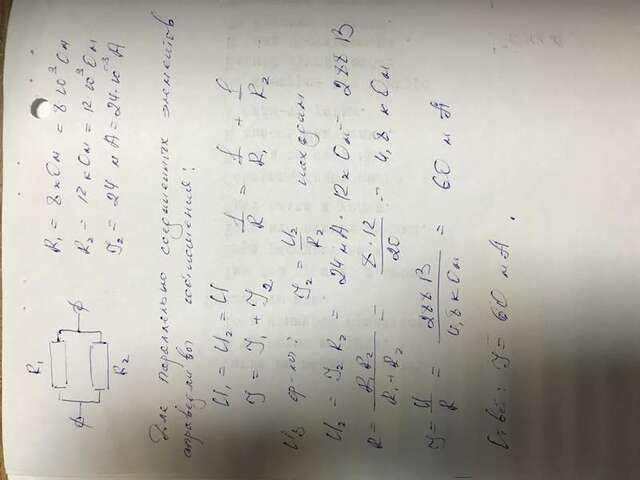 R₁
R₂
R₁ = 8 кОм = 8·10³ Ом
R₂ = 12 кОм = 12·10³ Ом
J₂ = 24 мА = 24·10⁻³ А
Для параллельно соединенных элементов
справедливы соотношения:
U₁ = U₂ = U
J = J₁ + J₂
1/R = 1/R₁ + 1/R₂
Из ф-лы: J₂ = U₂/R₂ находим
U₂ = J₂ R₂ = 24 мА · 12 кОм = 288 В
R = R₁R₂/(R₁+R₂) = 8·12/20 = 4,8 кОм
J = U/R = 288 В/4,8 кОм = 60 мА
Ответ: J = 60 мА.